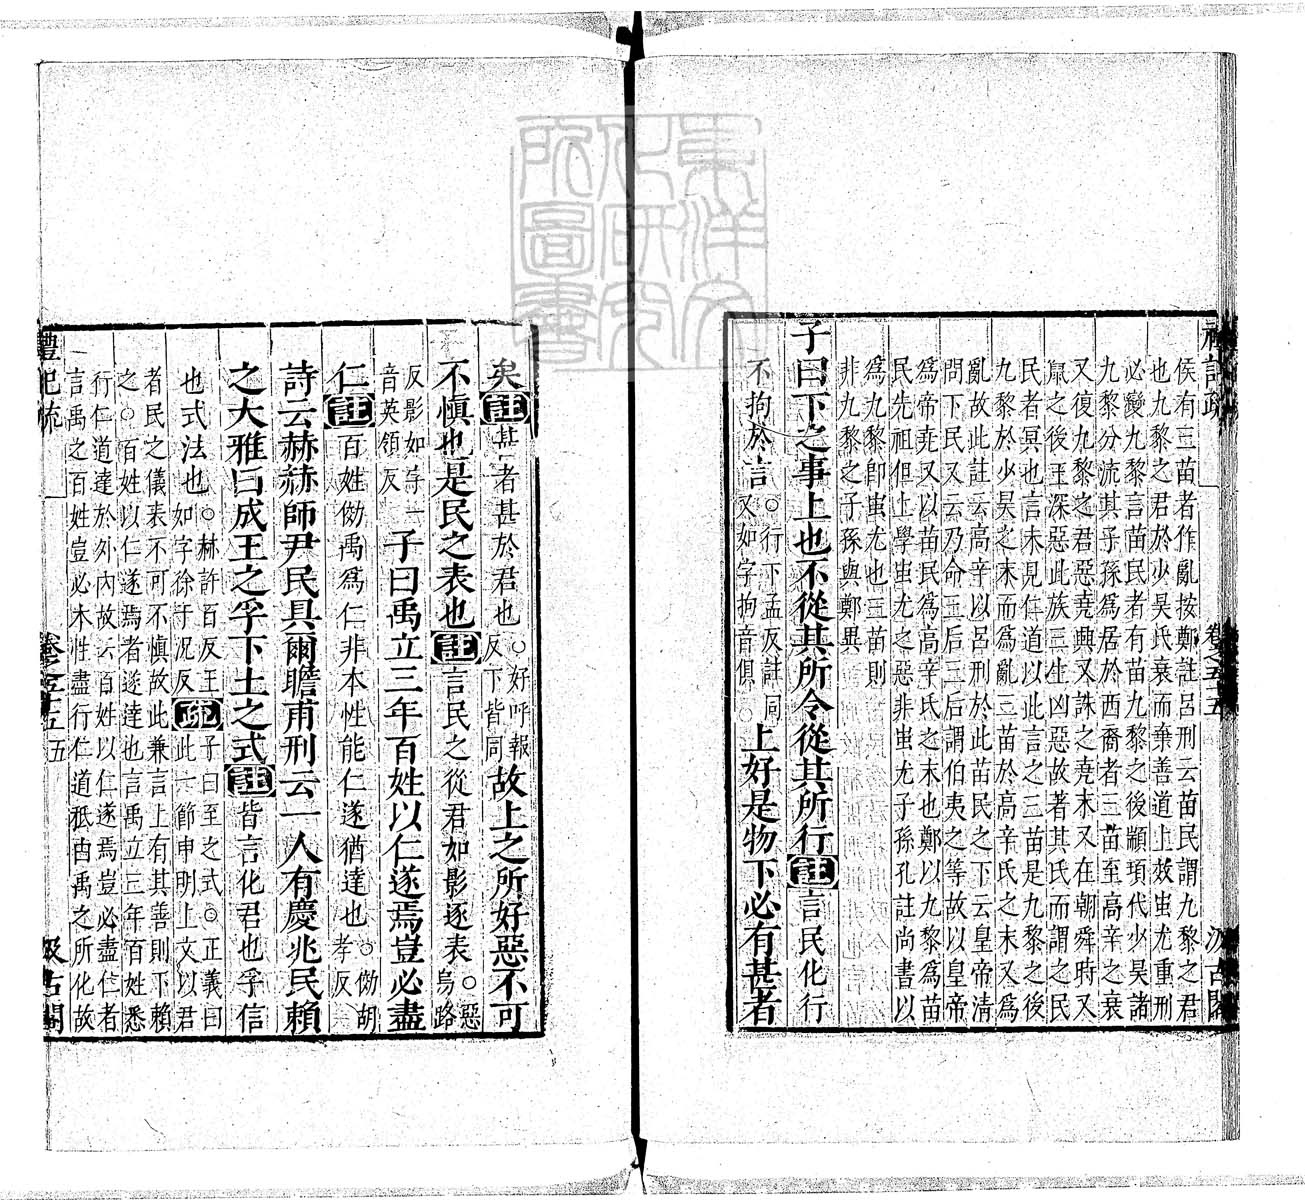 侯有三苗者作亂按鄭註呂刑云苗民謂九黎之君
也九黎之君於少昊氏衰而棄善道上效蚩尤重刑
必變九黎言苗民者有苗九黎之後顓頊代少昊諸
九黎分流其子孫為居於西裔者三苗至高辛之衰
又復九黎之君惡堯興又誅之堯末又在朝舜時又
竄之後王深惡此族三生凶惡故著其氏而謂之民
民者冥也言未見仁道以此言之三苗是九黎之後
九黎於少昊之末而為亂三苗於高辛氏之末又為
亂故此註云高辛以呂刑於此苗民之下云皇帝清
問下民又云乃命三后三后謂伯夷之等故以皇帝
為帝堯又以苗民為高辛氏之末也鄭以九黎為苗
民先祖但上學蚩尤之惡非蚩尤子孫孔註尚書以
為九黎卽蚩尤也三苗則
非九黎之子孫與鄭異
子曰下之事上也不從其所令從其所行註言民化行
不拘於言○行下孟反註同又如字拘音俱○上好是物下必有甚者
矣註甚者甚於君也○好呼報反下皆同故上之所好惡不可
不慎也是民之表也註言民之從君如影逐表○惡烏路
反影如字一音英領反子曰禹立三年百姓以仁遂焉豈必盡
仁註百姓傚禹為仁非本性能仁遂猶達也○傚胡孝反
詩云赫赫師尹民具爾瞻甫刑云一人有慶兆民賴
之大雅曰成王之孚下土之式註皆言化君也孚信
也式法也○赫許百反王如字徐于況反疏子曰至之式○正義曰此一節申明上文以君
者民之儀表不可不慎故此兼言上有其善則下賴
之○百姓以仁遂焉者遂達也言禹立三年百姓悉
行仁道達於外內故云百姓以仁遂焉豈必盡仁者
言禹之百姓豈必本性盡行仁道秪由禹之所化故
禮記疏
卷之五十五
五
汲古閣